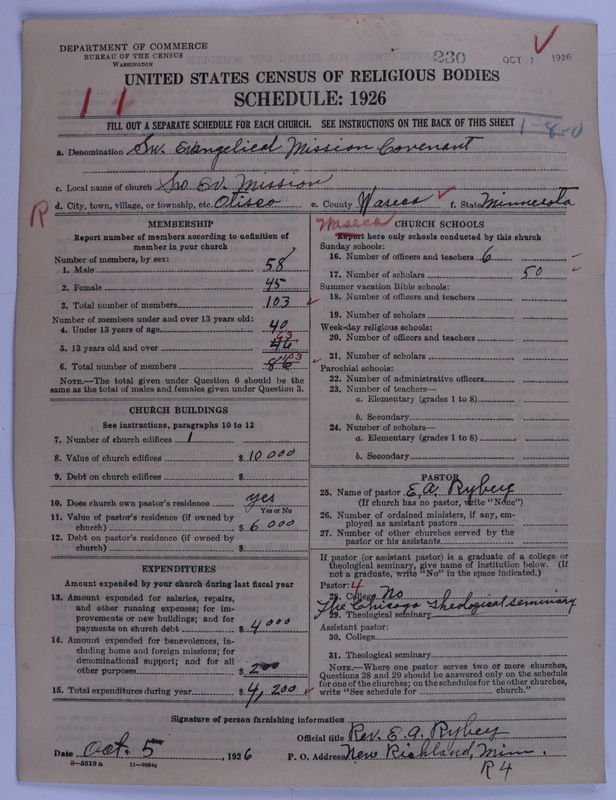 DEPARTMENT OF COMMERCE
BUREAU OF THE CENSUS
WASHINGTON
230
OCT 7 1926
UNITED STATES CENSUS OF RELIGIOUS BODIES
SCHEDULE: 1926
1 1
FILL OUT A SEPARATE SCHEDULE FOR EACH CHURCH. SEE INSTRUCTIONS ON THE BACK OF THIS SHEET
1-8-0
a. Denomination Sw. Evangelical Mission Covenant
c. Local name of church Sw Ev. Mission
R d. City, town, village, or township, etc. Otisco e. County Waseca f. State Minnesota
MEMBERSHIP
Report number of members according to definition of
member in your church
Number of members, by sex:
1. Male 58
2. Female 45
3. Total number of members 103
Number of members under and over 13 years old:
4. Under 13 years of age 40
5. 13 years old and over 46 63
6. Total number of members 86 103
NOTE.—The total given under Question 6 should be the
same as the total of males and females given under Question 3.
CHURCH BUILDINGS
See instructions, paragraphs 10 to 12
7. Number of church edifices 1
8. Value of church edifices $ 10000
9. Debt on church edifices $
10. Does church own pastor's residence yes
Yes or No
11. Value of pastor's residence (if owned by
church) $ 6000
12. Debt on pastor's residence (if owned by
church) $
EXPENDITURES
Amount expended by your church during last fiscal year
13. Amount expended for salaries, repairs,
and other running expenses; for im-
provements or new buildings; and for
payments on church debt $ 4000
14. Amount expended for benevolences, in-
cluding home and foreign missions; for
denominational support; and for all
other purposes $ 200
15. Total expenditures during year $ 4,200
Waseca
CHURCH SCHOOLS
Report here only schools conducted by this church
Sunday schools:
16. Number of officers and teachers 6
17. Number of scholars 50
Summer vacation Bible schools:
18. Number of officers and teachers
19. Number of scholars
Week-day religious schools:
20. Number of officers and teachers
21. Number of scholars
Parochial schools:
22. Number of administrative officers
23. Number of teachers—
a. Elementary (grades 1 to 8)
b. Secondary
24. Number of scholars—
a. Elementary (grades 1 to 8)
b. Secondary
PASTOR
25. Name of pastor E. A. Ryberg
(If church has no pastor, write "None")
26. Number of ordained ministers, if any, em-
ployed as assistant pastors
27. Number of other churches served by the
pastor or his assistants
If pastor (or assistant pastor) is a graduate of a college or
theological seminary, give name of institution below. (If
not a graduate, write "No" in the space indicated.)
Pastor: 4
28. College No
The Chicago Theological seminary
29. Theological seminary
Assistant pastor:
30. College
31. Theological seminary
NOTE.—Where one pastor serves two or more churches,
Questions 28 and 29 should be answered only on the schedule
for one of the churches; on the schedules for the other churches,
write "See schedule for church."
Signature of person furnishing information
Official title Rev. E. A. Ryberg
Date Oct. 5, 1926 P. O. Address New Richland, Minn.
R 4
8-5518 a 11-9054g